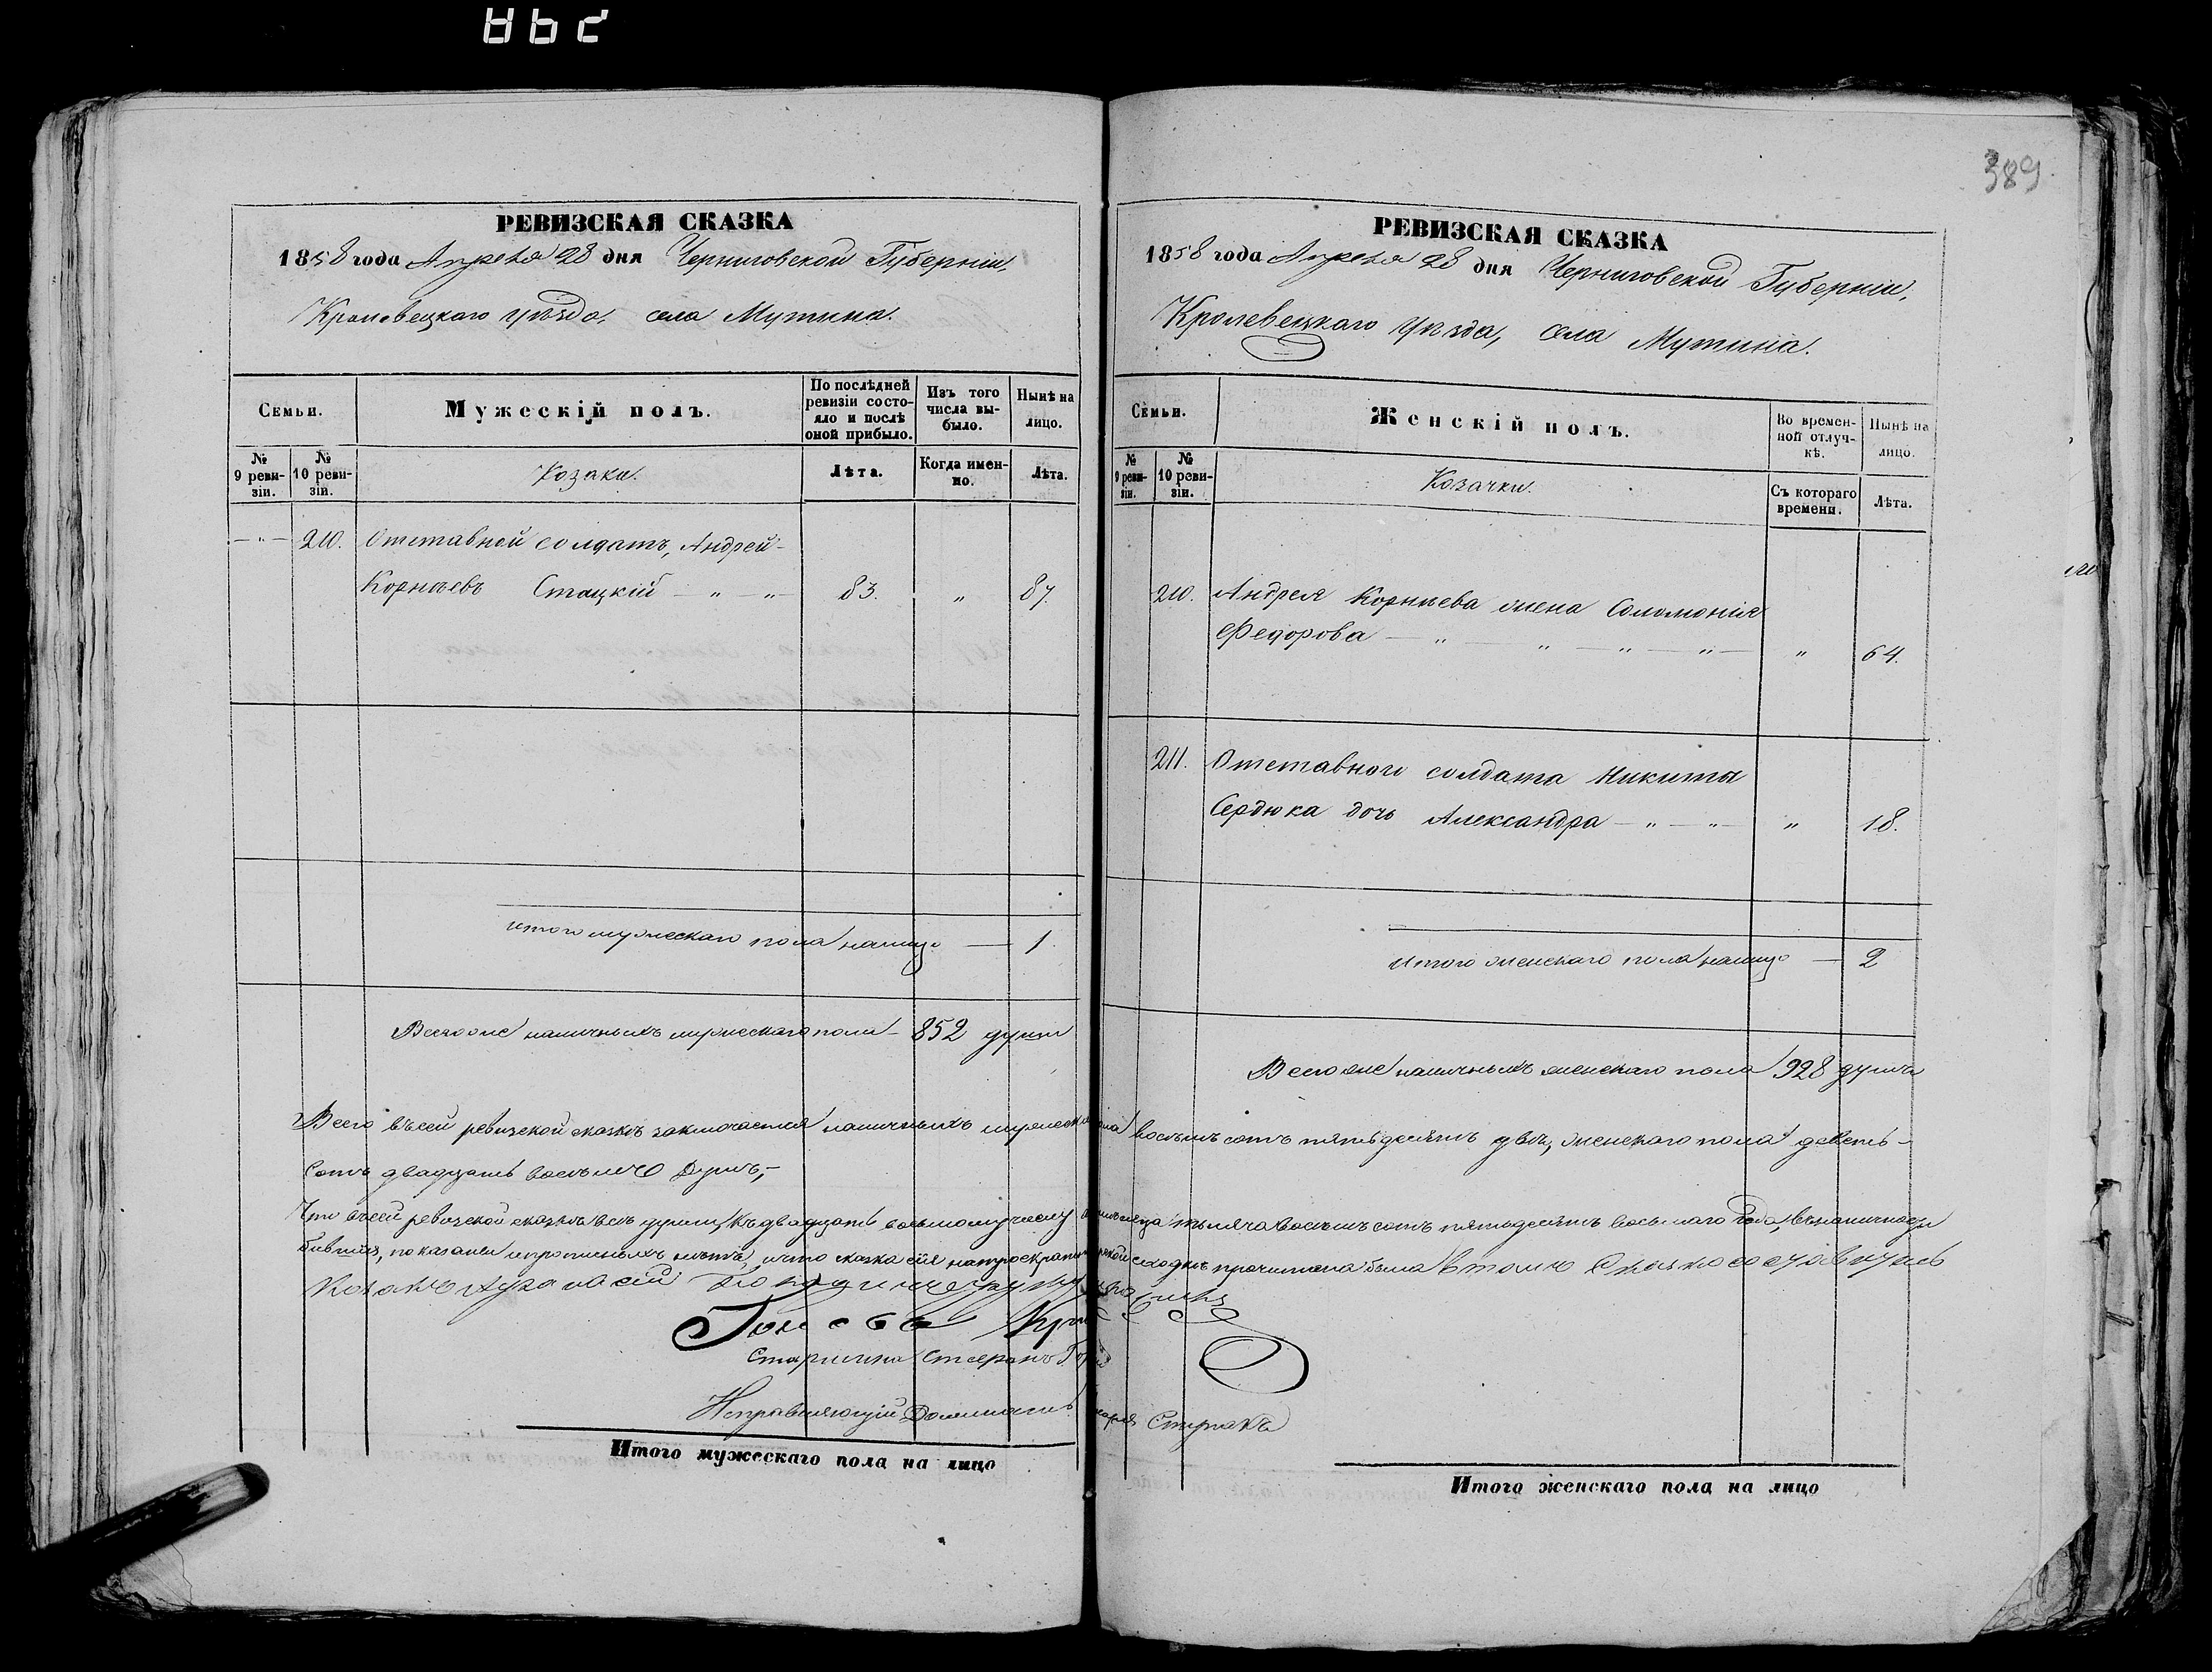 389
РЕВИЗСКАЯ СКАЗКА
1858 года Апреля 28 дня Черниговской Губерніи,
Кролевецкаго уѣзда, села Мутина.
Семьи.
Мужескій полъ.
По послѣдней ревизіи состояло и послѣ оной прибыло.
Изъ того числа выбыло.
Нынѣ на лицо.
№ 9 ревизіи.
№ 10 ревизіи.
Козаки.
Лѣта.
Когда именно.
Лѣта.
— " — 210. Отставной солдатъ, Андрей
Корнѣевъ Стацкій — " — " — 83. " 87.
Итого мужескаго пола налицо — 1.
Всего же наличныхъ мужескаго пола — 852 души
РЕВИЗСКАЯ СКАЗКА
1858 года Апреля 28 дня Черниговской Губерніи,
Кролевецкаго уѣзда, села Мутина.
Семьи.
Женскій полъ.
Во временной отлучкѣ.
Нынѣ на лицо.
№ 9 ревизіи.
№ 10 ревизіи.
Козачки.
Съ котораго времени.
Лѣта.
210. Андрея Корнѣева жена Соломонія
Федорова — " — " — " — " — " 64.
211. Отставнаго солдата Никиты
Сердюка дочь Александра — " — " — " 18.
Итого женскаго пола налицо — 2
Всего же наличныхъ женскаго пола 928 душъ
Всего въ сей ревизской сказкѣ заключается наличныхъ мужеска пола восемьсотъ пятьдесятъ двѣ, женскаго пола девять-
сотъ двадцать восемь душъ,—
Что въ сей ревизской сказкѣ всѣ души, къ двадцать восьмому числу тысяча восемьсотъ пятьдесятъ восьмаго года, въ наличности
бывшія, показаны и прописныхъ нѣтъ, и что сказка сія на прочитана была в томъ
Старшина Стефанъ
Исправляющій Должность Писаря
Итого мужескаго пола на лицо
Итого женскаго пола на лицо